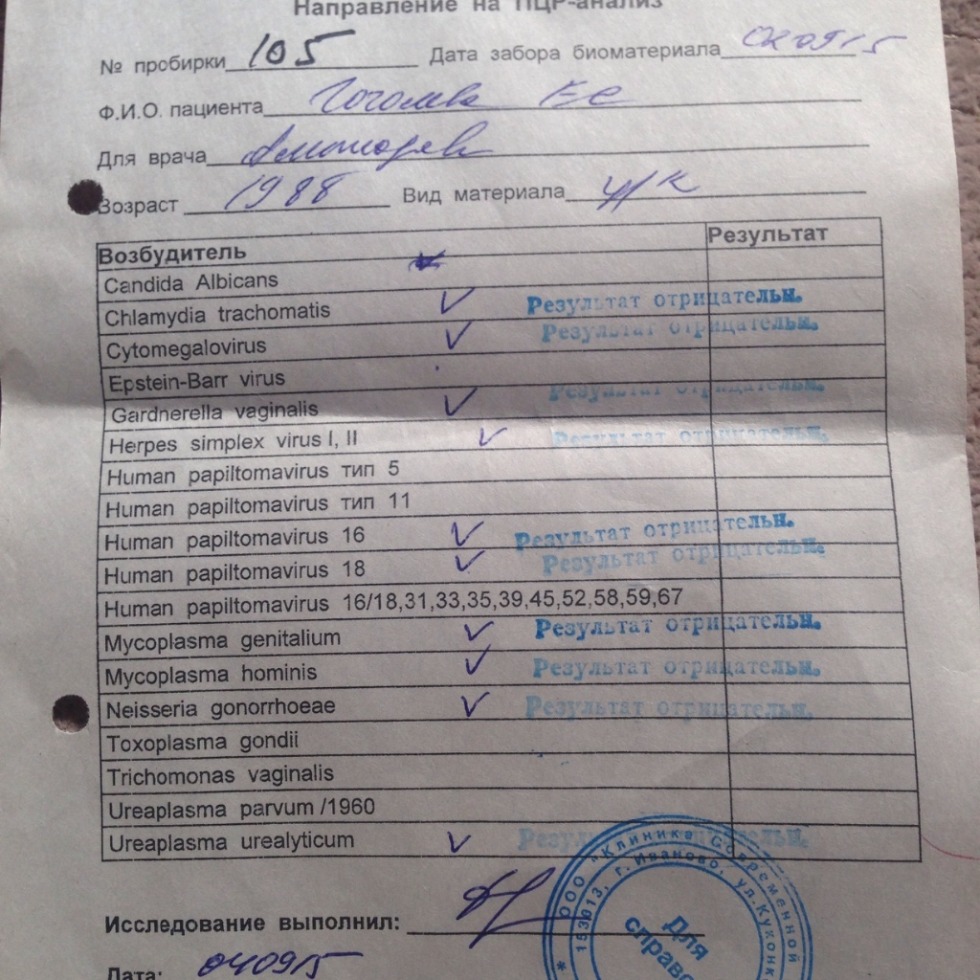 Направление на ПЦР-анализ
№ пробирки 105 Дата забора биоматериала 020915
Ф.И.О. пациента
Для врача
Возраст 1988 Вид материала ц/к
Возбудитель Результат
Candida Albicans
Chlamydia trachomatis ✓ Результат отрицательн.
Cytomegalovirus ✓ Результат отрицательн.
Epstein-Barr virus
Gardnerella vaginalis ✓ Результат отрицательн.
Herpes simplex virus I, II ✓ Результат отрицательн.
Human papiltomavirus тип 5
Human papiltomavirus тип 11
Human papiltomavirus 16 ✓ Результат отрицательн.
Human papiltomavirus 18 ✓ Результат отрицательн.
Human papiltomavirus 16/18,31,33,35,39,45,52,58,59,67
Mycoplasma genitalium ✓ Результат отрицательн.
Mycoplasma hominis ✓ Результат отрицательн.
Neisseria gonorrhoeae ✓ Результат отрицательн.
Toxoplasma gondii
Trichomonas vaginalis
Ureaplasma parvum /1960
Ureaplasma urealyticum ✓ Результат отрицательн.
Исследование выполнил:
Дата: 040915
* ООО "Клиника Современной
153013, г. Иваново, ул.Куконк
Для
справо